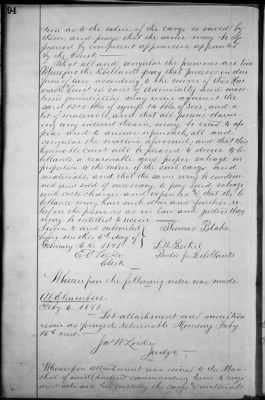 94
tion as to the value of the cargo so saved by
them, and prays that the same may be ap-
praised by competent appraisers appointed
by the Court.
That all and singular the premises are true
Wherefore the libellants pray that process in due
form of law according to the course of this Hon-
orable Court in cases of Admiralty and mari-
time jurisdiction may issue against the
said
of materials, and that all persons claim-
ing any interest therein may be cited to ap-
pear and to answer upon oath all and
singular the matters aforesaid, and that this
honorable Court will be pleased to decree to li-
bellants a reasonable and proper salvage in
proportion to the value of the said cargo and
materials, and that the same may be condem-
ned and sold if necessary to pay said salvage
with costs charges and expenses & that the li-
bellants may have such other and further re-
lief in the premises as in law and justice they
may be entitled to receive.
Sworn to and subscribed
before me this 6th day of
February A.D. 1891
Clerk
Thomas Blake
L. W. Bethel
Proctor for Libellants
Whereupon the following order was made.
At Chambers
Feby 6. 1891.
Let attachment and monition
issue as prayed, returnable Monday Feby
16th inst.
Jas W Locke
Judge
Whereupon attachment was issued to the Mar-
shal of said district commanding him to seize
and take into his custody the cargo & materials